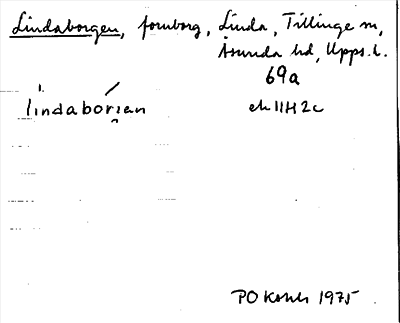 Lindaborgen, fornborg, Linda, Tillinge sn,
Åsunda hd, Upps. l.
69a
lindabórı̯an
ek 11H2c
PO 1975